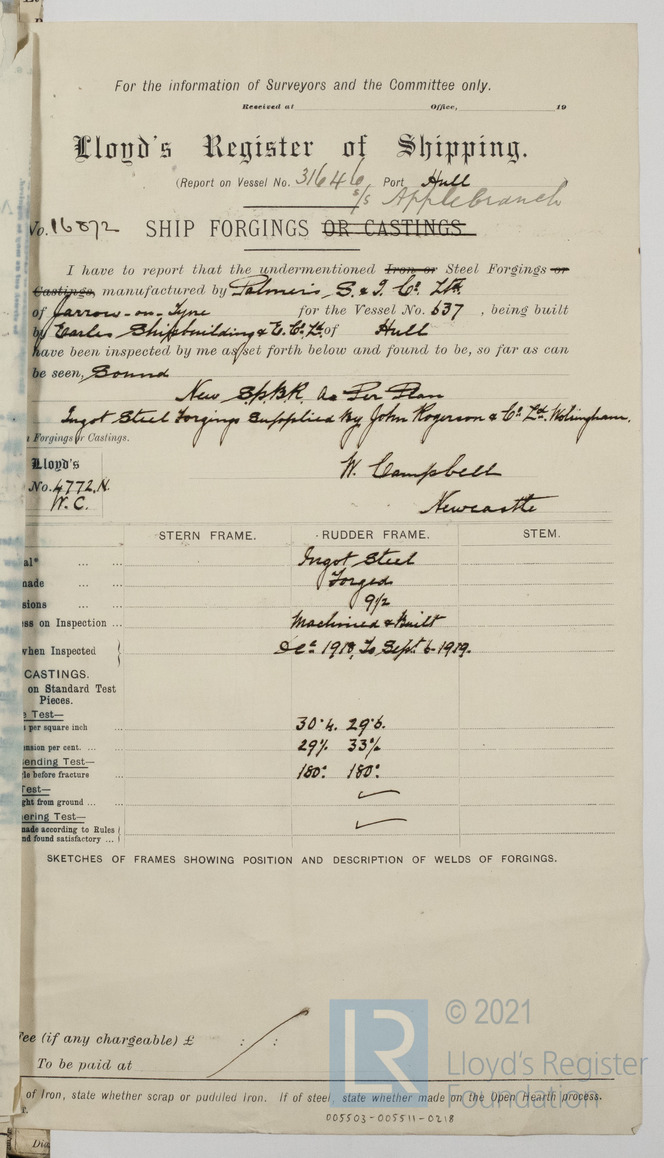 For the information of Surveyors and the Committee only.
Received at Office, 19
Lloyd's Register of Shipping.
(Report on Vessel No. 31646 Port Hull
s/s Applebranch
No. 16872 SHIP FORGINGS OR CASTINGS.
I have to report that the undermentioned Iron or Steel Forgings or
Castings, manufactured by Palmer's S. & I. Co. Ltd.
of Jarrow-on-Tyne for the Vessel No. 637, being built
by Earles Shipbuilding & E. Co. Ld. of Hull
have been inspected by me as set forth below and found to be, so far as can
be seen, Sound
New Sp. BK. As Per Plan
Ingot Steel Forgings Supplied by John Rogerson & Co. Ld. Wolsingham.
Forgings or Castings.
Lloyd's
No. 4772.N.
W.C.
W. Campbell
Newcastle
STERN FRAME. RUDDER FRAME. STEM.
al* ... ... Ingot Steel
made ... ... Forged
sions ... ... 9 1/2
ss on Inspection ... Machined & Built
when Inspected Dec. 1918, To Sept. 6-1919.
CASTINGS.
on Standard Test
Pieces.
e Test—
s per square inch ... 30.4. 29.6.
nsion per cent. ... ... 29% 33%
ending Test—
le before fracture ... 180° 180°
Test—
ght from ground ... ...
ering Test—
made according to Rules
nd found satisfactory ...
SKETCHES OF FRAMES SHOWING POSITION AND DESCRIPTION OF WELDS OF FORGINGS.
Fee (if any chargeable) £ : :
To be paid at
of Iron, state whether scrap or puddled Iron. If of steel, state whether made on the Open Hearth process.
005503-005511-0218
LR
© 2021
Lloyd's Register
Foundation
Dia